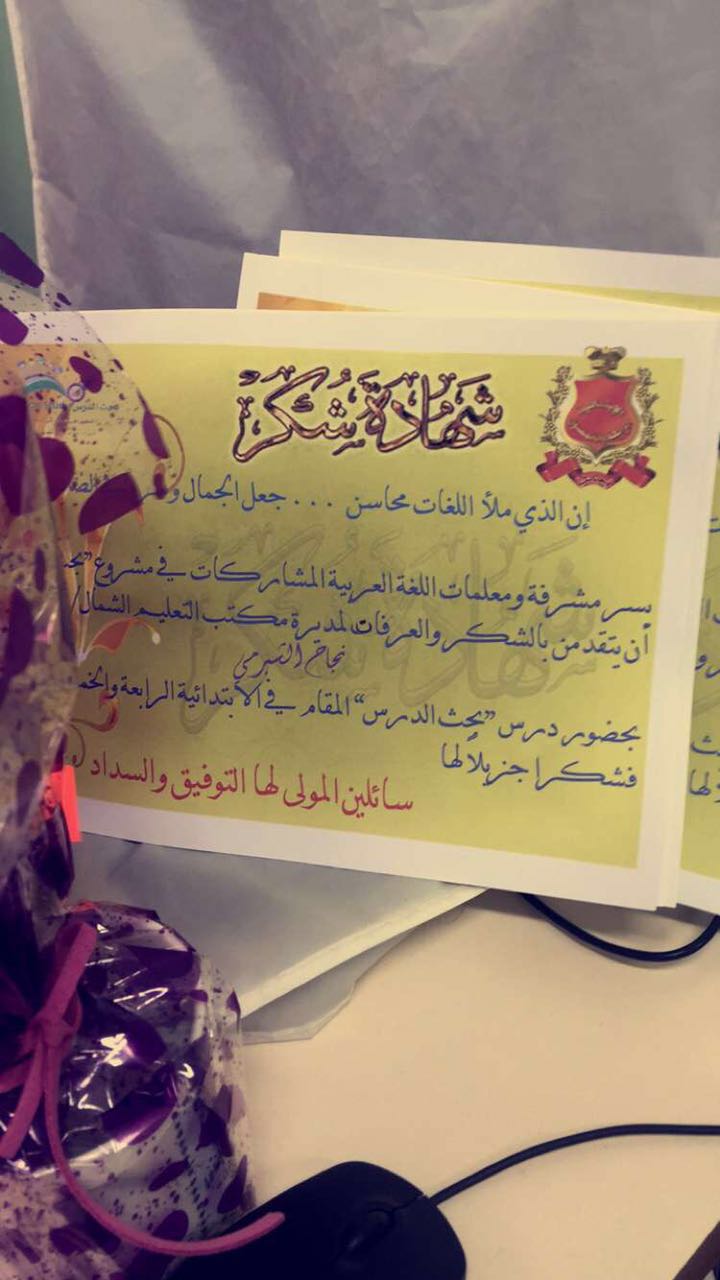 شهادة شكر
إن الذي ملأ اللغات محاسن ... جعل الجمال و
يسر مشرفة ومعلمات اللغة العربية المشاركات في مشروع "بح
أن يتقدمن بالشكر والعرفان لمديرة مكتب التعليم الشمال/
نجاح
بحضور درس "بحث الدرس" المقام في الابتدائية الرابعة والخم
فشكرا جزيلا لها
سائلين المولى لها التوفيق والسداد